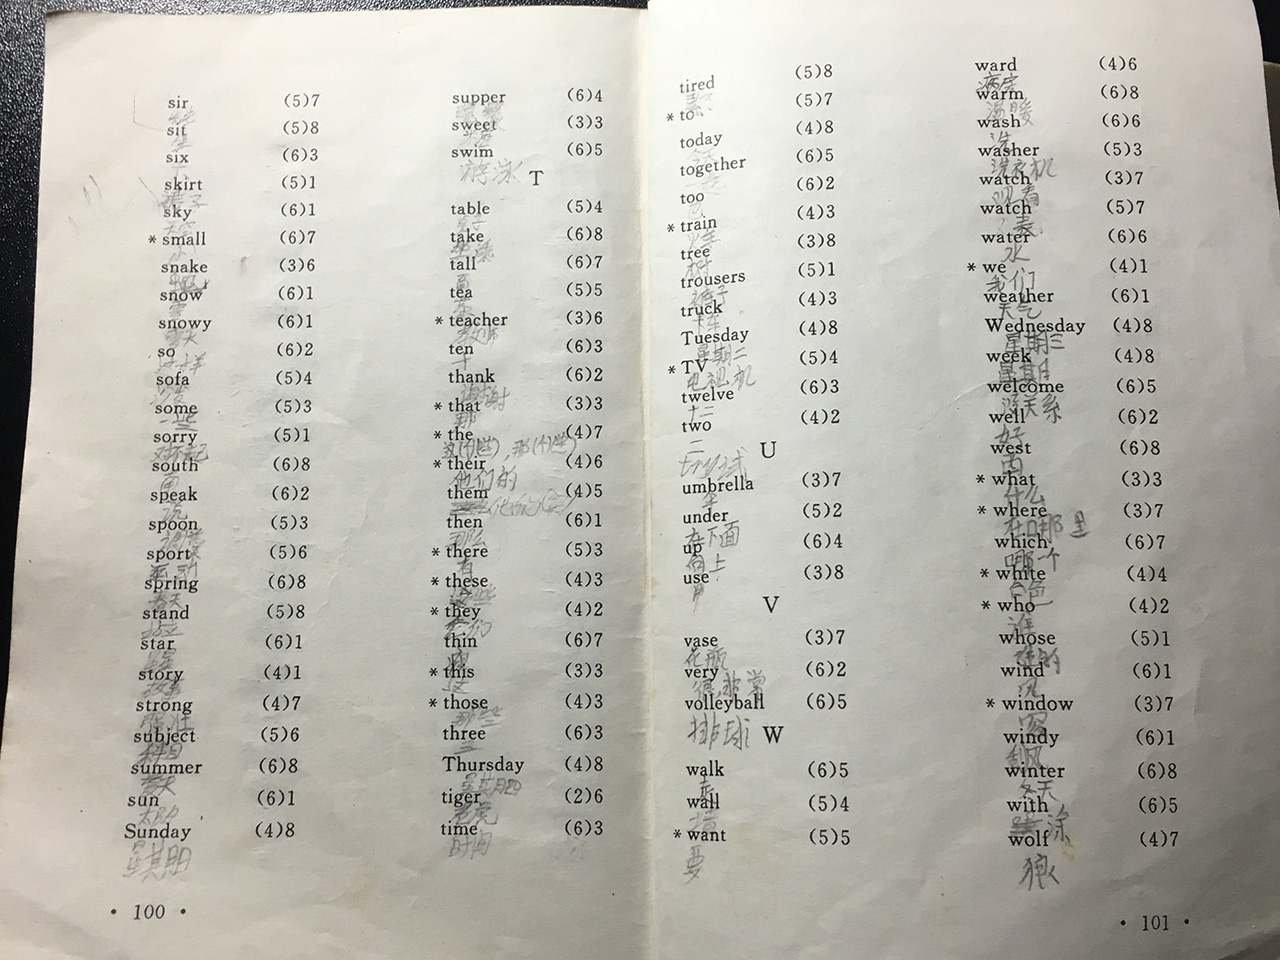 sir (5)7
sit (5)8
six (6)3
skirt (5)1
裙子
sky (6)1
* small (6)7
小
snake (3)6
snow (6)1
snowy (6)1
so (6)2
sofa (5)4
some (5)3
一些
sorry (5)1
对不起
south (6)8
南
speak (6)2
说
spoon (5)3
sport (5)6
运动
spring (6)8
春天
stand (5)8
站立
star (6)1
story (4)1
故事
strong (4)7
强壮
subject (5)6
科目
summer (6)8
夏天
sun (6)1
太阳
Sunday (4)8
星其日
· 100 ·
supper (6)4
sweet (3)3
swim (6)5
游泳
T
table (5)4
take (6)8
tall (6)7
高
tea (5)5
茶
* teacher (3)6
教师
ten (6)3
十
thank (6)2
谢谢
* that (3)3
那
* the (4)7
这(个)(些), 那(个)(些)
* their (4)6
他们的
them (4)5
then (6)1
那么
* there (5)3
有
* these (4)3
这些
* they (4)2
thin (6)7
* this (3)3
这
* those (4)3
那些
three (6)3
三
Thursday (4)8
星其四
tiger (2)6
老虎
time (6)3
时间
tired (5)8
累
* to (5)7
today (4)8
今天
together (6)5
一起
too (6)2
也
* train (4)3
火车
tree (3)8
树
trousers (5)1
裤子
truck (4)3
卡车
Tuesday (4)8
星期二
* TV (5)4
电视机
twelve (6)3
十二
two (4)2
二
U
umbrella (3)7
伞
under (5)2
在下面
up (6)4
向上
use (3)8
用
V
vase (3)7
花瓶
very (6)2
很,非常
volleyball (6)5
排球
W
walk (6)5
走
wall (5)4
墙
* want (5)5
要
ward (4)6
病房
warm (6)8
温暖
wash (6)6
洗
washer (5)3
洗衣机
watch (3)7
观看
watch (5)7
表
water (6)6
水
* we (4)1
我们
weather (6)1
天气
Wednesday (4)8
星期三
week (4)8
星期
welcome (6)5
没关系
well (6)2
好
west (6)8
西
* what (3)3
什么
* where (3)7
在哪里
which (6)7
哪一个
* white (4)4
白色
* who (4)2
谁
whose (5)1
谁的
wind (6)1
风
* window (3)7
窗
windy (6)1
winter (6)8
冬天
with (6)5
wolf (4)7
狼
· 101 ·